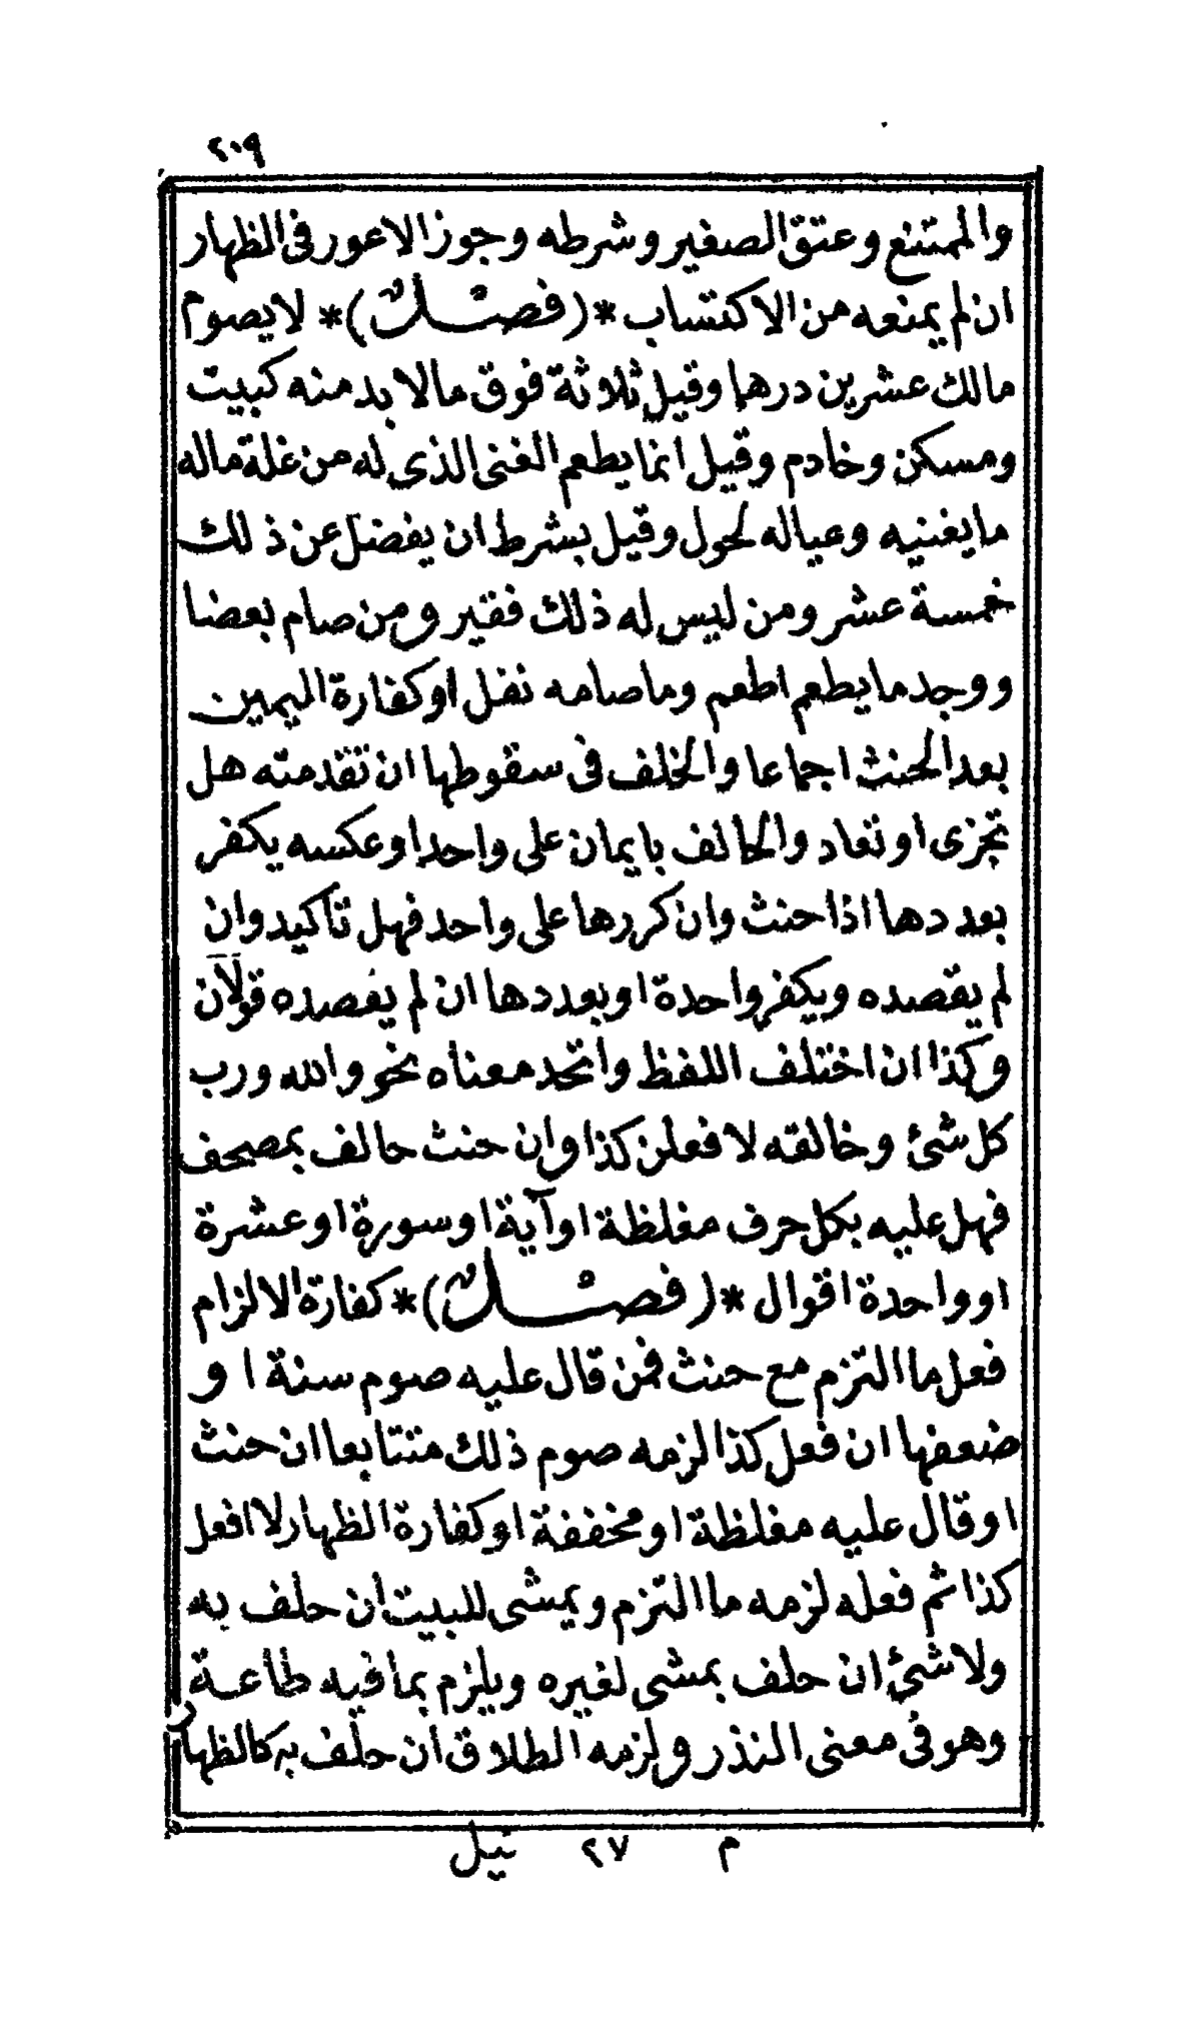 ٢٠٩
والممتنع وعتق الصغير وشرطه وجوز الاعور فى الظهار
ان لم يمنعه من الاكتساب *( فصل )* لا يصوم
مالك عشرين درهما وقيل ثلاثة فوق مالا بد منه كبيت
ومسكن وخادم وقيل انما يطعم الغنى الذى له من غلة ماله
ما يغنيه وعياله لحول وقيل بشرط ان يفضل عن ذلك
خمسة عشر ومن ليس له ذلك فقير ومن صام بعضا
ووجد ما يطعم اطعم وما صامه نفل او كفارة اليمين
بعد الحنث اجماعا والخلف فى سقوطها ان تقدمته هل
تجزى او تعاد والحالف بايمان على واحد او عكسه يكفر
بعددها اذا حنث وان كررها على واحد فهل تأكيد وان
لم يقصده ويكفر واحدة او بعددها ان لم يقصده قولان
وكذا ان اختلف اللفظ واتحد معناه نحو والله ورب
كل شئ وخالقه لا فعلن كذا وان حنث حالف بمصحف
فهل عليه بكل حرف مغلظة او آية او سورة او عشرة
او واحدة اقوال *( فصل )* كفارة الالزام
فعل ما التزم مع حنث فمن قال عليه صوم سنة ا و
ضعفها ان فعل كذا لزمه صوم ذلك متتابعا ان حنث
او قال عليه مغلظة او مخففة او كفارة الظهار لا افعل
كذا ثم فعله لزمه ما التزم ويمشى للبيت ان حلف به
ولا شئ ان حلف بمشى لغيره ويلزم بما فيه طاعة
وهو فى معنى النذر ولزمه الطلاق ان حلف به كالظهار
م ٢٧ نيل